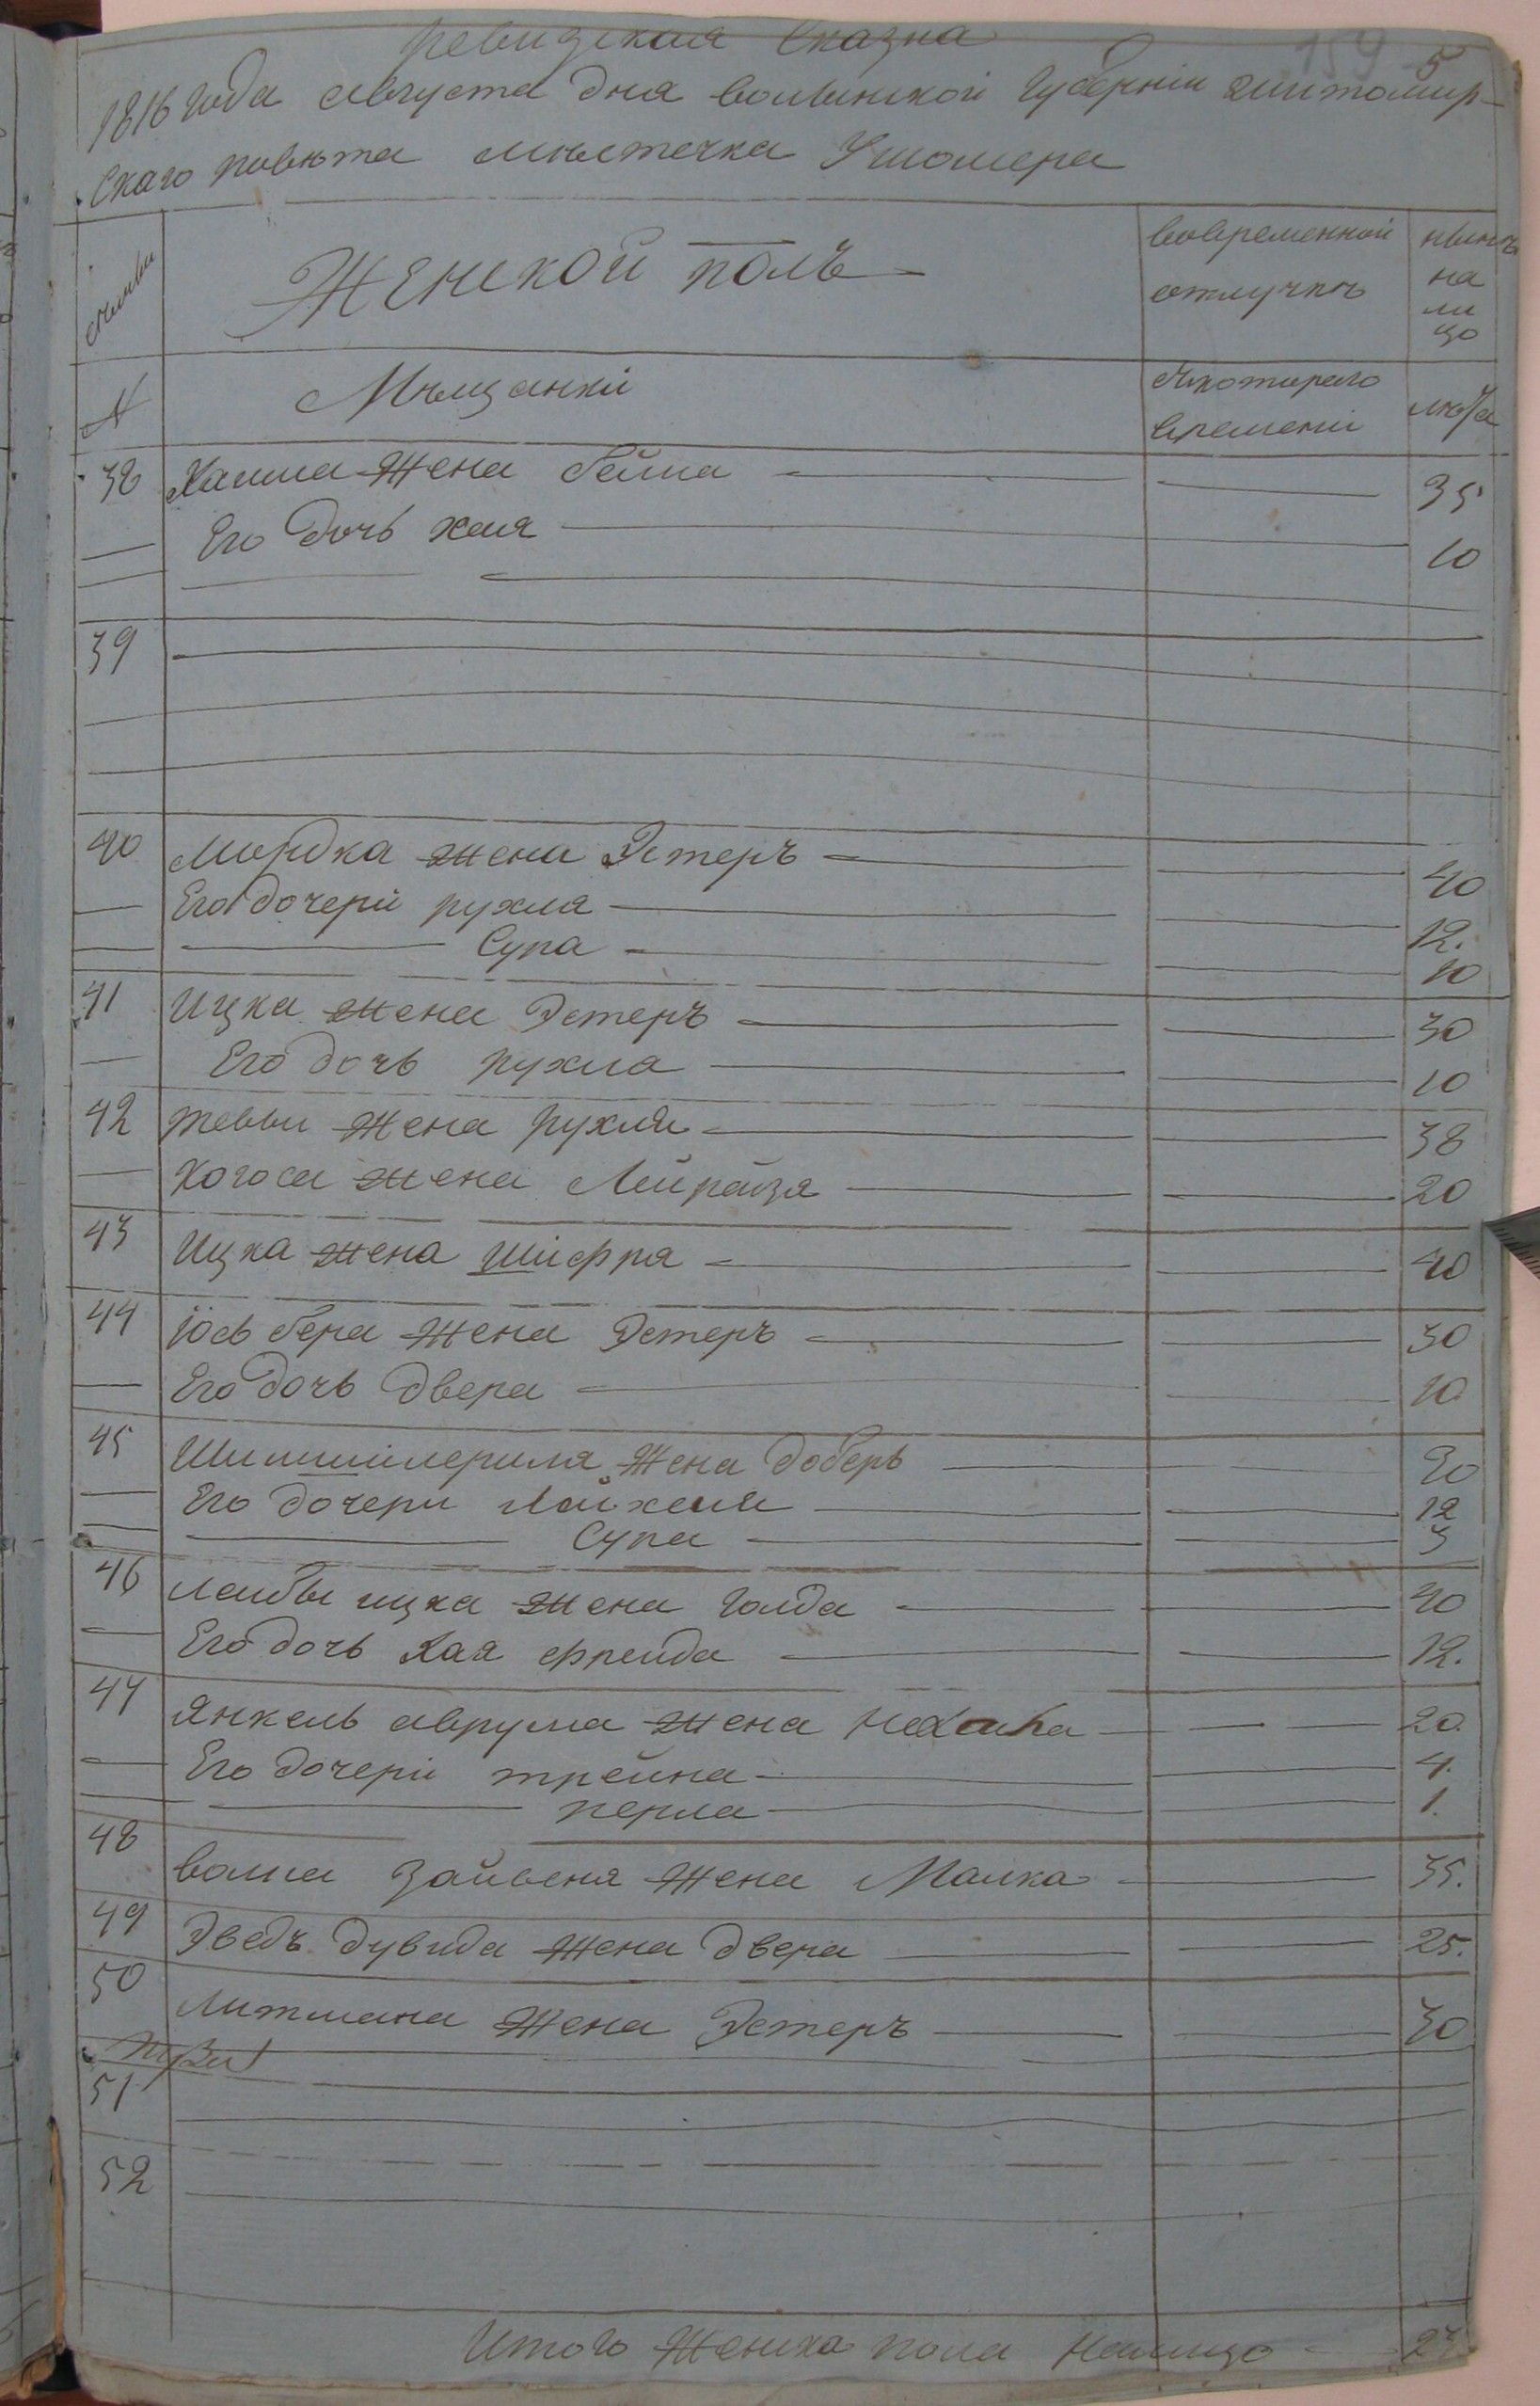 ревизская Сказка
159 5
1816 года августа дня волынской Губерніи житомир-
Скаго повѣта мѣстечка Ушомера
семьи
Женской полъ
вовременной отлучкѣ
нынѣ на ли цо
N
Мѣщанки
скотораго времени
лѣта
38 Хаима жена бейла 35
Его дочь хая 10
39
40 Мордка жена Эстеръ 40
Его дочери рухля 12.
Сура 10
41 Ицка жена Эстеръ 30
Его дочь рухла 10
42 жена рухля 38
жена Лейрайзя 20
43 Ицка жена шифра 40
44 Іось бера жена Эстеръ 30
Его дочь двера 10
45 жена доберь 40
Его дочери 12
Сура 3
46 Лейбы ицка жена голда 40
Его дочь Хая фрейда 12.
47 Янкель аврума жена Нехама 20.
Его дочери трейна 4.
перла 1.
48 волка жена Малка 35.
49 дувида жена двера 25.
50 Литмана жена Эстеръ 30
51
52
Итого женска пола налицо